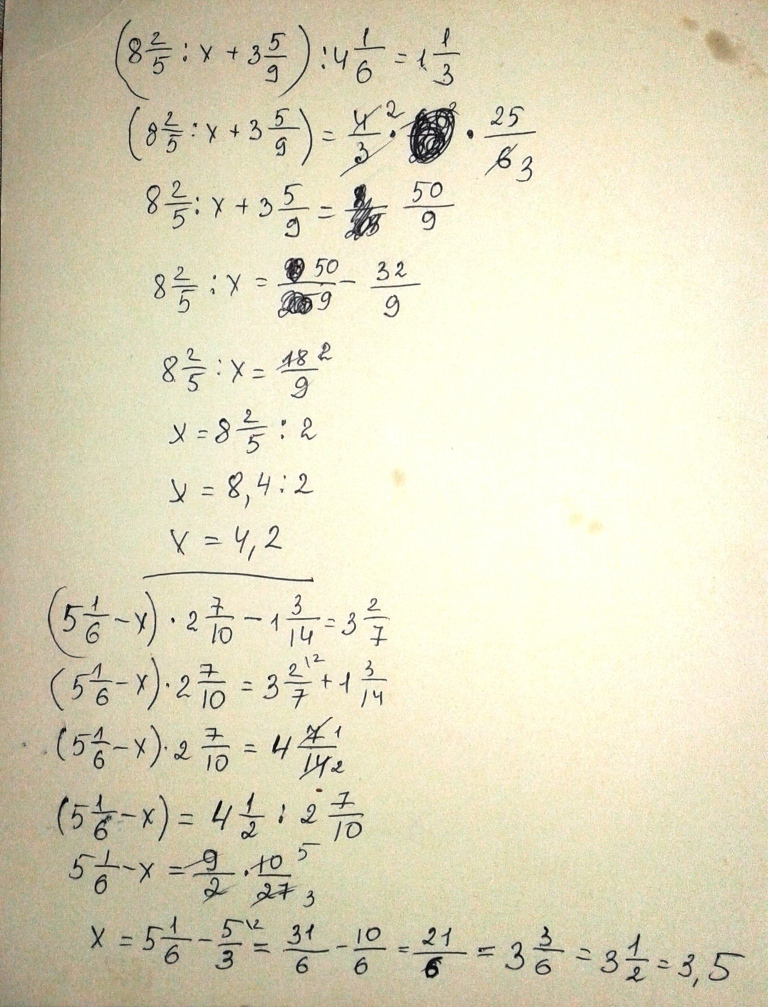 (8 2/5 : x + 3 5/9) : 4 1/6 = 1 1/3
(8 2/5 : x + 3 5/9) = 4/3 2 · · 25/6 3
8 2/5 : x + 3 5/9 = 50/9
8 2/5 : x = 50/9 - 32/9
8 2/5 : x = 18/9 2
x = 8 2/5 : 2
x = 8,4 : 2
x = 4,2
(5 1/6 - x) · 2 7/10 - 1 3/14 = 3 2/7
(5 1/6 - x) · 2 7/10 = 3 2/7 \2 + 1 3/14
(5 1/6 - x) · 2 7/10 = 4 7/14 1 2
(5 1/6 - x) = 4 1/2 : 2 7/10
5 1/6 - x = 9/2 · 10/27 5 3
x = 5 1/6 - 5/3 \2 = 31/6 - 10/6 = 21/6 = 3 3/6 = 3 1/2 = 3,5